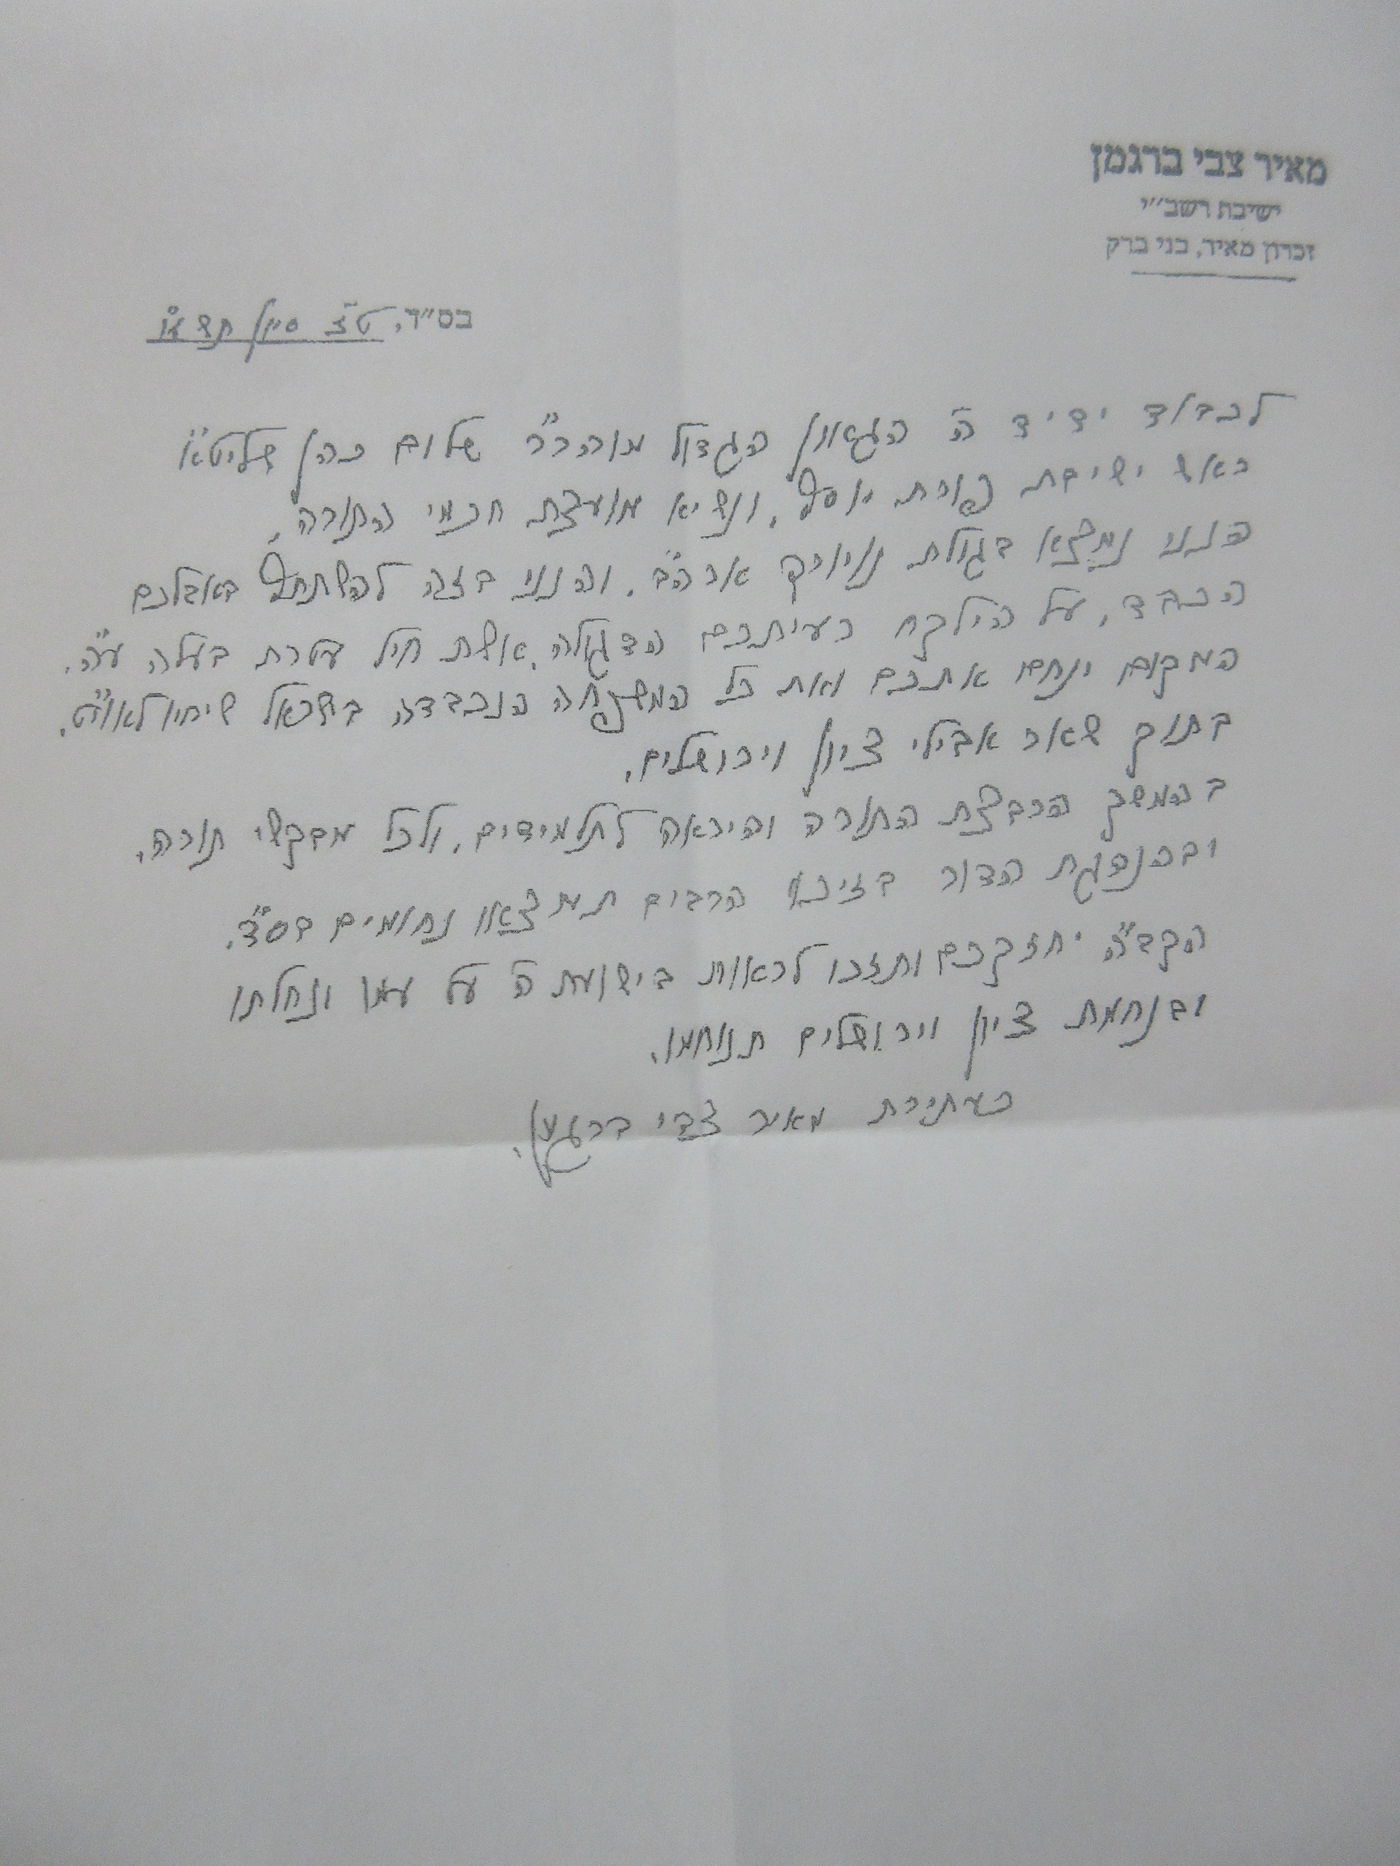 מאיר צבי ברגמן
ישיבת רשב״י
זכרון מאיר, בני ברק
בס״ד, ט״ז סיון
לכבוד ידיד ה' הגאון הגדול מוהר״ר שלום כהן שליט״א
ראש ישיבת פורת יוסף, ונשיא מועצת חכמי התורה,
הנני נמצא בגולת נויורק ארה״ב. והנני בזה להשתתף באבלכם
הכבד, על הילקח רעיתכם הדגולה, אשת חיל עטרת בעלה ע״ה.
המקום ינחם אתכם ואת כל המשפחה הנכבדה בישראל שיחיו לאוי״ט.
בתוך שאר אבילי ציון וירושלים.
בהמשך הרבצת התורה והיראה לתלמידים, ולכל מבקשי תורה,
ובהנהגת הדור בזיכוי הרבים תמצאו נחומים בס״ד.
הקב״ה יחזקכם ותזכו לראות בישועת ה' על עמו ונחלתו
ובנחמת ציון וירושלים תנוחמו.
כעתירת מאיר צבי ברגמן.